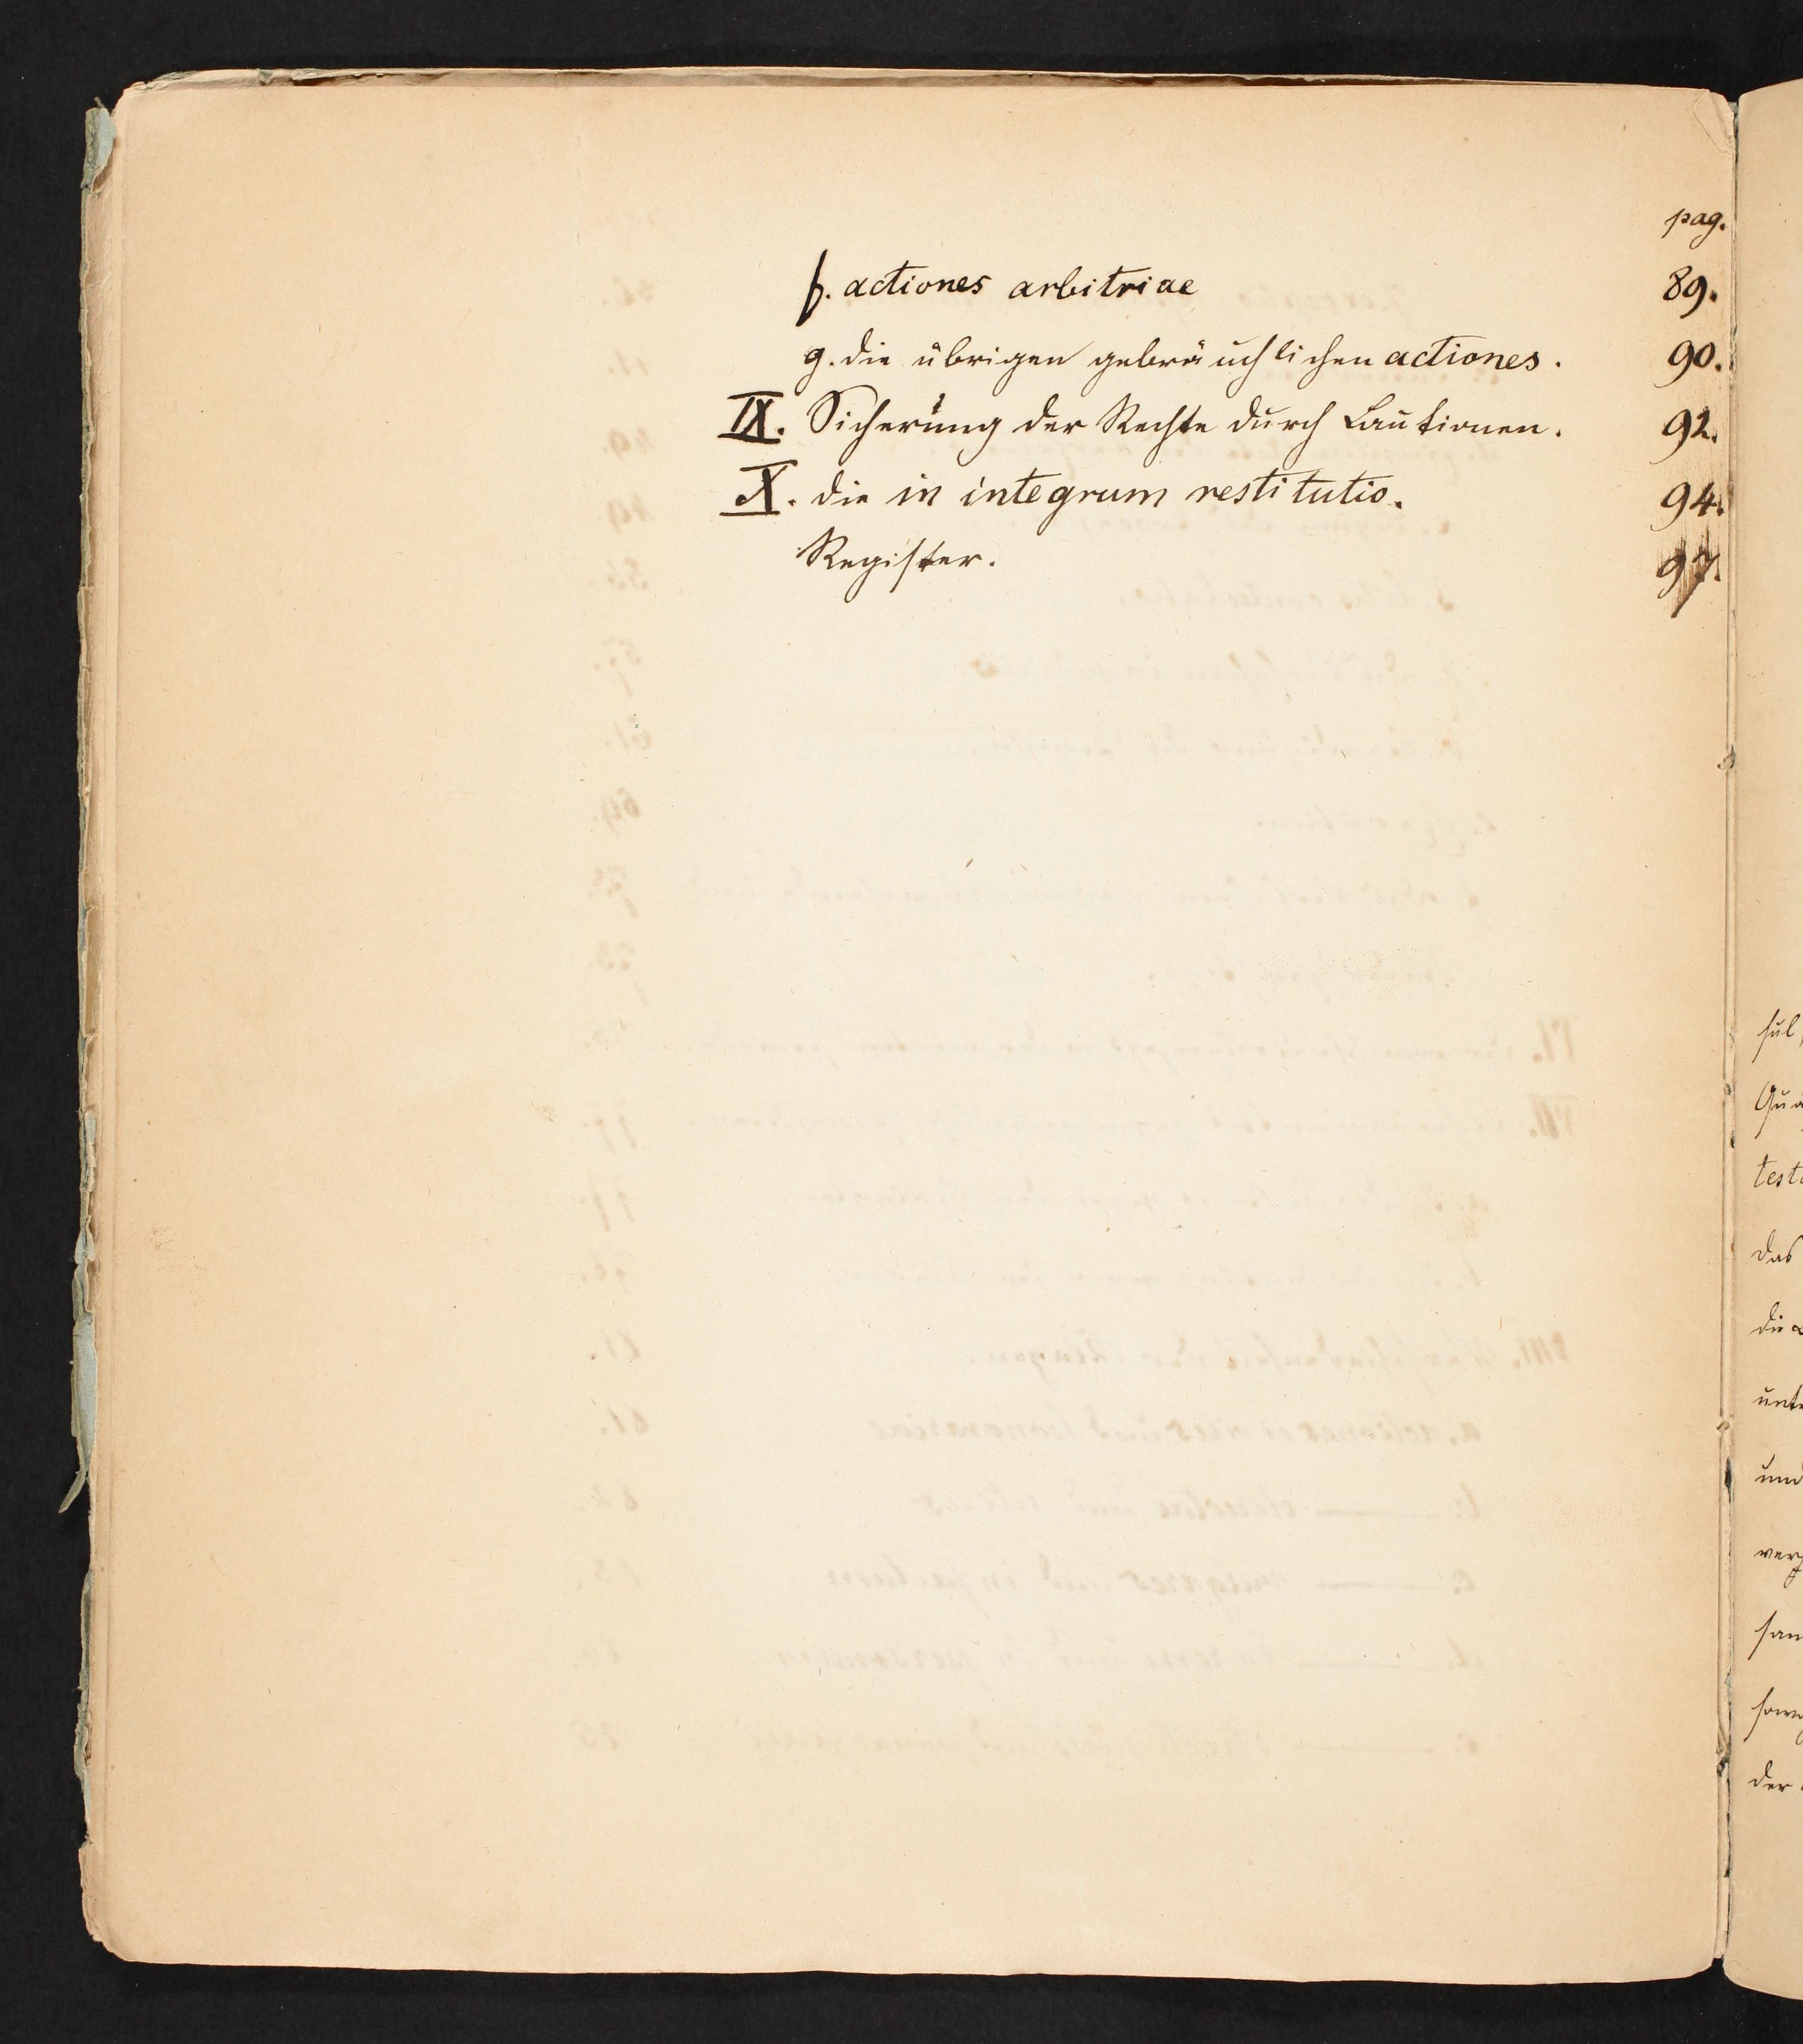 pag.
f. actiones arbitriae 89.
g. die übrigen gebräuchlichen actiones. 90.
IX. Sicherung der Rechte durch Cautionen. 92.
X. die in integrum restitutio. 94.
Register. 97.
das
und
der